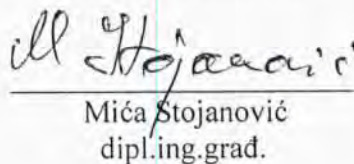 M Stojanović
Mića Stojanović
dipl.ing.građ.